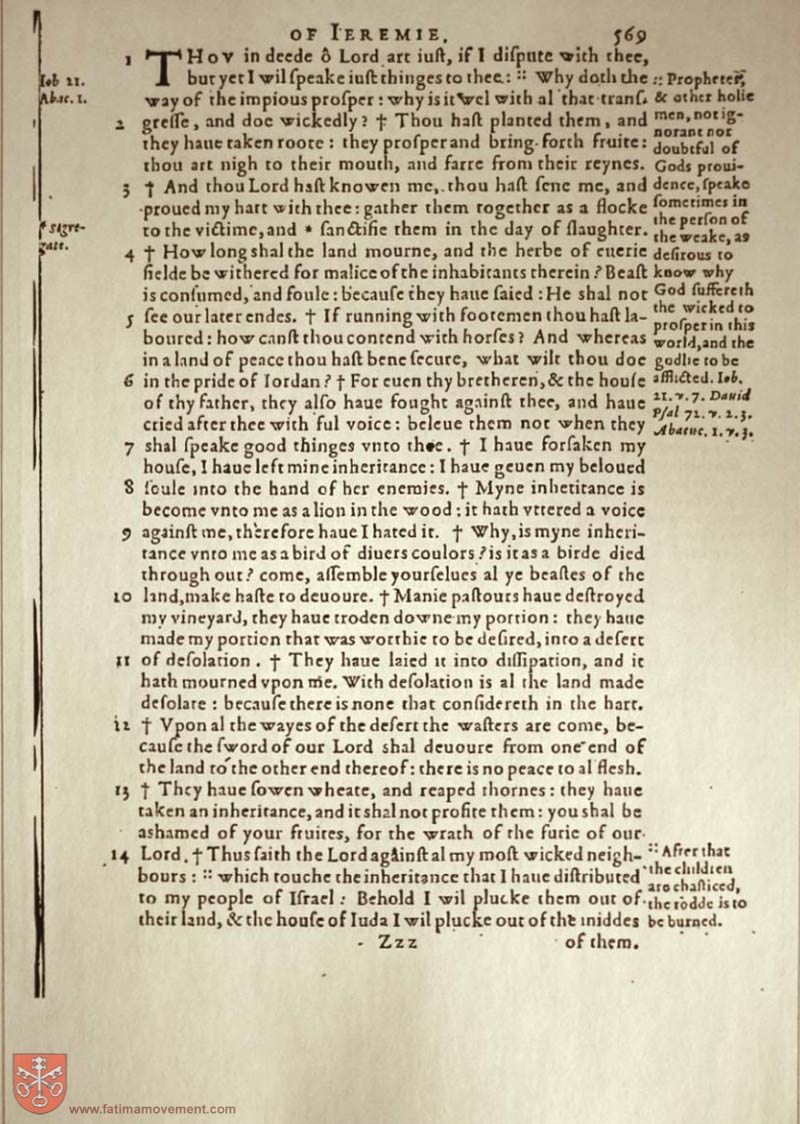 OF IEREMIE. 569
1 THOV in deede ô Lord art iuſt, if I diſpute with thee,
but yet I wil ſpeake iuſt thinges to thee: :: Why doth the
way of the impious proſper: why is it wel with al that tranſ-
2 greſſe, and doe wickedly? † Thou haſt planted them, and
they haue taken roote: they proſper and bring forth fruite:
thou art nigh to their mouth, and farre from their reynes.
3 † And thou Lord haſt knowen me, thou haſt ſene me, and
proued my hart with thee: gather them together as a flocke
to the victime, and * ſanctifie them in the day of ſlaughter.
4 † How long shal the land mourne, and the herbe of euerie
fielde be withered for malice of the inhabitants therein? Beaſt
is conſumed, and foule: becauſe they haue ſaied: He shal not
5 ſee our later endes. † If running with footemen thou haſt la-
boured: how canſt thou contend with horſes? And whereas
in a land of peace thou haſt bene ſecure, what wilt thou doe
6 in the pride of Iordan? † For euen thy bretheren, & the houſe
of thy father, they alſo haue fought againſt thee, and haue
cried after thee with ful voice: beleue them not when they
7 shal ſpeake good thinges vnto thee. † I haue forſaken my
houſe, I haue left mine inheritance: I haue geuen my beloued
8 ſoule into the hand of her enemies. † Myne inheritance is
become vnto me as a lion in the wood: it hath vttered a voice
9 againſt me, therefore haue I hated it. † Why, is myne inheri-
tance vnto me as a bird of diuers coulors? is it as a birde died
through out? come, aſſemble yourſelues al ye beaſtes of the
10 land, make haſte to deuoure. † Manie paſtours haue deſtroyed
my vineyard, they haue troden downe my portion: they haue
made my portion that was worthie to be deſired, into a deſert
11 of deſolation. † They haue laied it into diſſipation, and it
hath mourned vpon me. With deſolation is al the land made
deſolate: becauſe there is none that conſidereth in the hart.
12 † Vpon al the wayes of the deſert the waſters are come, be-
cauſe the ſword of our Lord shal deuoure from one end of
the land to the other end thereof: there is no peace to al flesh.
13 † They haue ſowen wheate, and reaped thornes: they haue
taken an inheritance, and it shal not profite them: you shal be
ashamed of your fruites, for the wrath of the furie of our
14 Lord. † Thus ſaith the Lord againſt al my moſt wicked neigh-
bours: :: which touche the inheritance that I haue diſtributed
to my people of Iſrael: Behold I wil plucke them out of
their land, & the houſe of Iuda I wil plucke out of the middes
Zzz of them.
Iob 21.
Abac. 1.
* segre-
gate.
:: Prophetes,
& other holie
men, not ig-
norant nor
doubtful of
Gods proui-
dence, ſpeake
ſometimes in
the perſon of
the weake, as
deſirous to
know why
God ſuffereth
the wicked to
proſper in this
world, and the
godlie to be
afflicted. Iob.
21. v. 7. Dauid
Pſal 72. v. 2. 3.
Abacuc. 1. v. 3.
:: After that
the children
are chaſticed,
the rodde is to
be burned.
www.fatimamovement.com